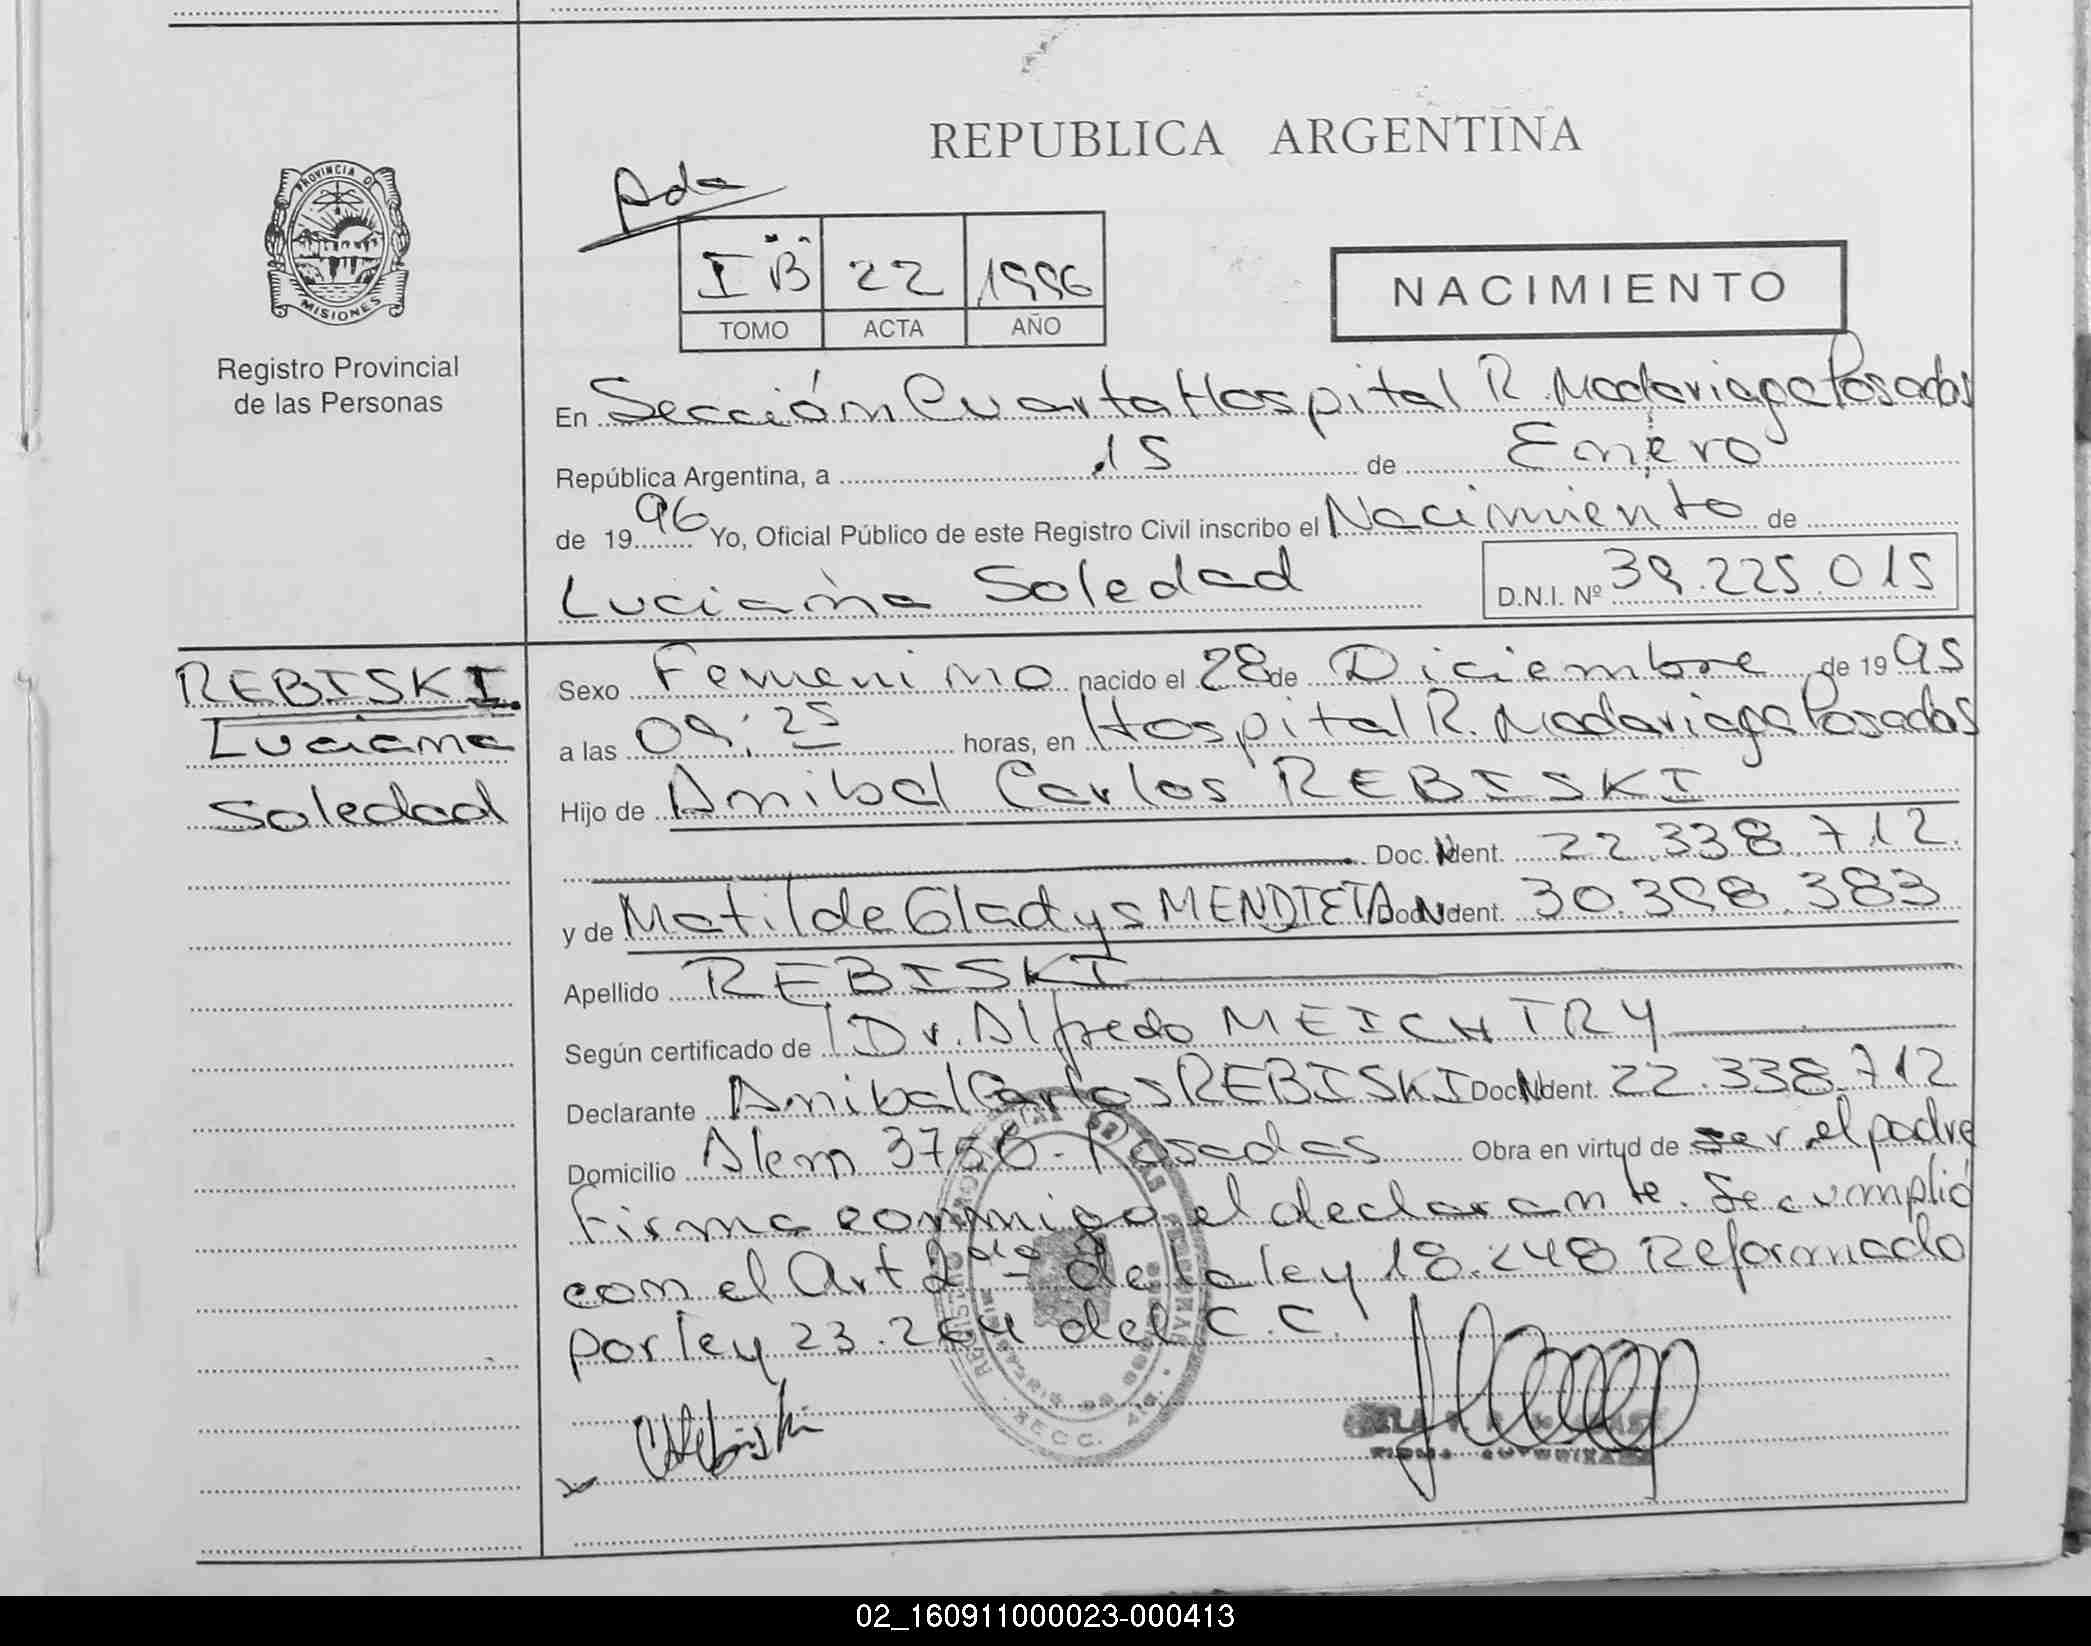 REPUBLICA ARGENTINA
PROVINCIA DE
MISIONES
Registro Provincial
de las Personas
Ada
I B 22 1996
TOMO ACTA AÑO
NACIMIENTO
En Sección Cuarta Hospital R. Madariaga Posadas
República Argentina, a 15 de Enero
de 1996 Yo, Oficial Público de este Registro Civil inscribo el Nacimiento de
Luciana Soledad D.N.I. Nº 39.225.015
REBISKI.
Luciana
Soledad
Sexo Femenino nacido el 28 de Diciembre de 1995
a las 09:25 horas, en Hospital R. Madariaga Posadas
Hijo de Anibal Carlos REBISKI
Doc. Ident. 22.338.712.
y de Matilde Gladys MENDIETA Doc. Ident. 30.398.383
Apellido REBISKI
Según certificado de Dr. Alfredo MEICHTRY
Declarante Anibal Carlos REBISKI Doc. Ident. 22.338.712
Domicilio Alem 3756 - Posadas Obra en virtud de ser el padre
Firma conmigo el declarante. Se cumplió
con el Art 2do - de la ley 18.248 Reformado
por ley 23.264 del C.C.
02_160911000023-000413